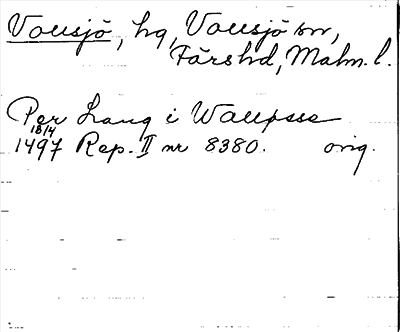 Vollsjö, hg, Vollsjö sn,
Färs hd, Malm. l.
Per Lang i Wallpsse
18/4
1497 Rep. II nr 8380. orig.